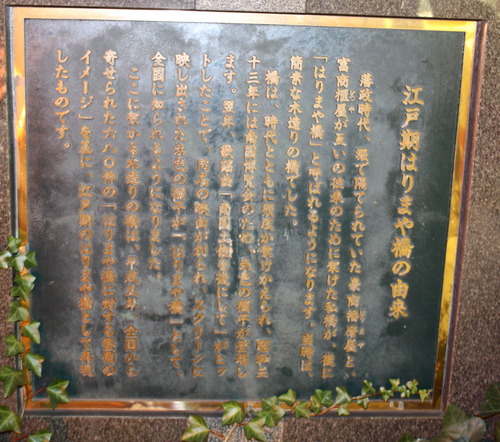 江戸期はりまや橋の由来
藩政時代、堀で隔てられていた豪商播磨屋と、
富商櫃屋が互いの往来のために架けた私橋が、後に
「はりまや橋」と呼ばれるようになります。当時は、
簡素な木造りの橋でした。
橋は、時代とともに幾度か架けかえられ、昭和三
十三年には南国博覧会のため、朱色の欄干が登場し
ます。翌年、歌謡曲「南国土佐を後にして」がヒッ
トしたことで、同名の映画が創られ、スクリーンに
映し出された朱色の橋は「はりまや橋」として、
全国に知られるようになりました。
ここに架かる木造りの橋は、平成
寄せられた六八〇件の「はりまや橋に対する
イメージ」を基に、江戸期のはりまや橋として再現
したものです。